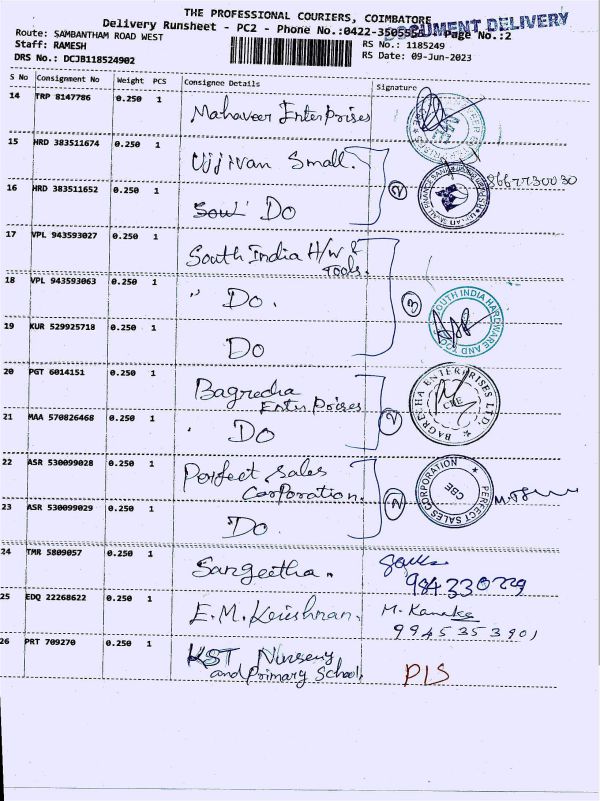 THE PROFESSIONAL COURIERS, COIMBATORE
DOCUMENT DELIVERY
Delivery Runsheet - PC2 - Phone No.:0422-350555 Page No.:2
Route: SAMBANTHAM ROAD WEST
RS No.: 1185249
Staff: RAMESH
RS Date: 09-Jun-2023
DRS No.: DCJB118524902
S No Consignment No Weight PCS Consignee Details Signature
14 TRP 8147786 0.250 1 Mahaveer Enterprises
15 HRD 383511674 0.250 1 Ujjivan Small.
16 HRD 383511652 0.250 1 Do
2
17 VPL 943593027 0.250 1 South India H/W & Tools.
18 VPL 943593063 0.250 1 " Do.
3 SOUTH INDIA HARDWARE AND
19 KUR 529925718 0.250 1 Do
20 PGT 6014151 0.250 1 Bagrecha Enterprises
2 BAGRECHA ENTERPRISES LTD. CBE
21 MAA 570826468 0.250 1 " Do
22 ASR 530099028 0.250 1 Perfect Sales Corporation.
2 PERFECT SALES CORPORATION CBE
23 ASR 530099029 0.250 1 "Do.
24 TMR 5809057 0.250 1 Sangeetha.
984330229
25 EDQ 22268622 0.250 1 E.M. Krishnan. M. Kanaka
9945353901
26 PRT 709270 0.250 1 KST Nursery and Primary School. PLS